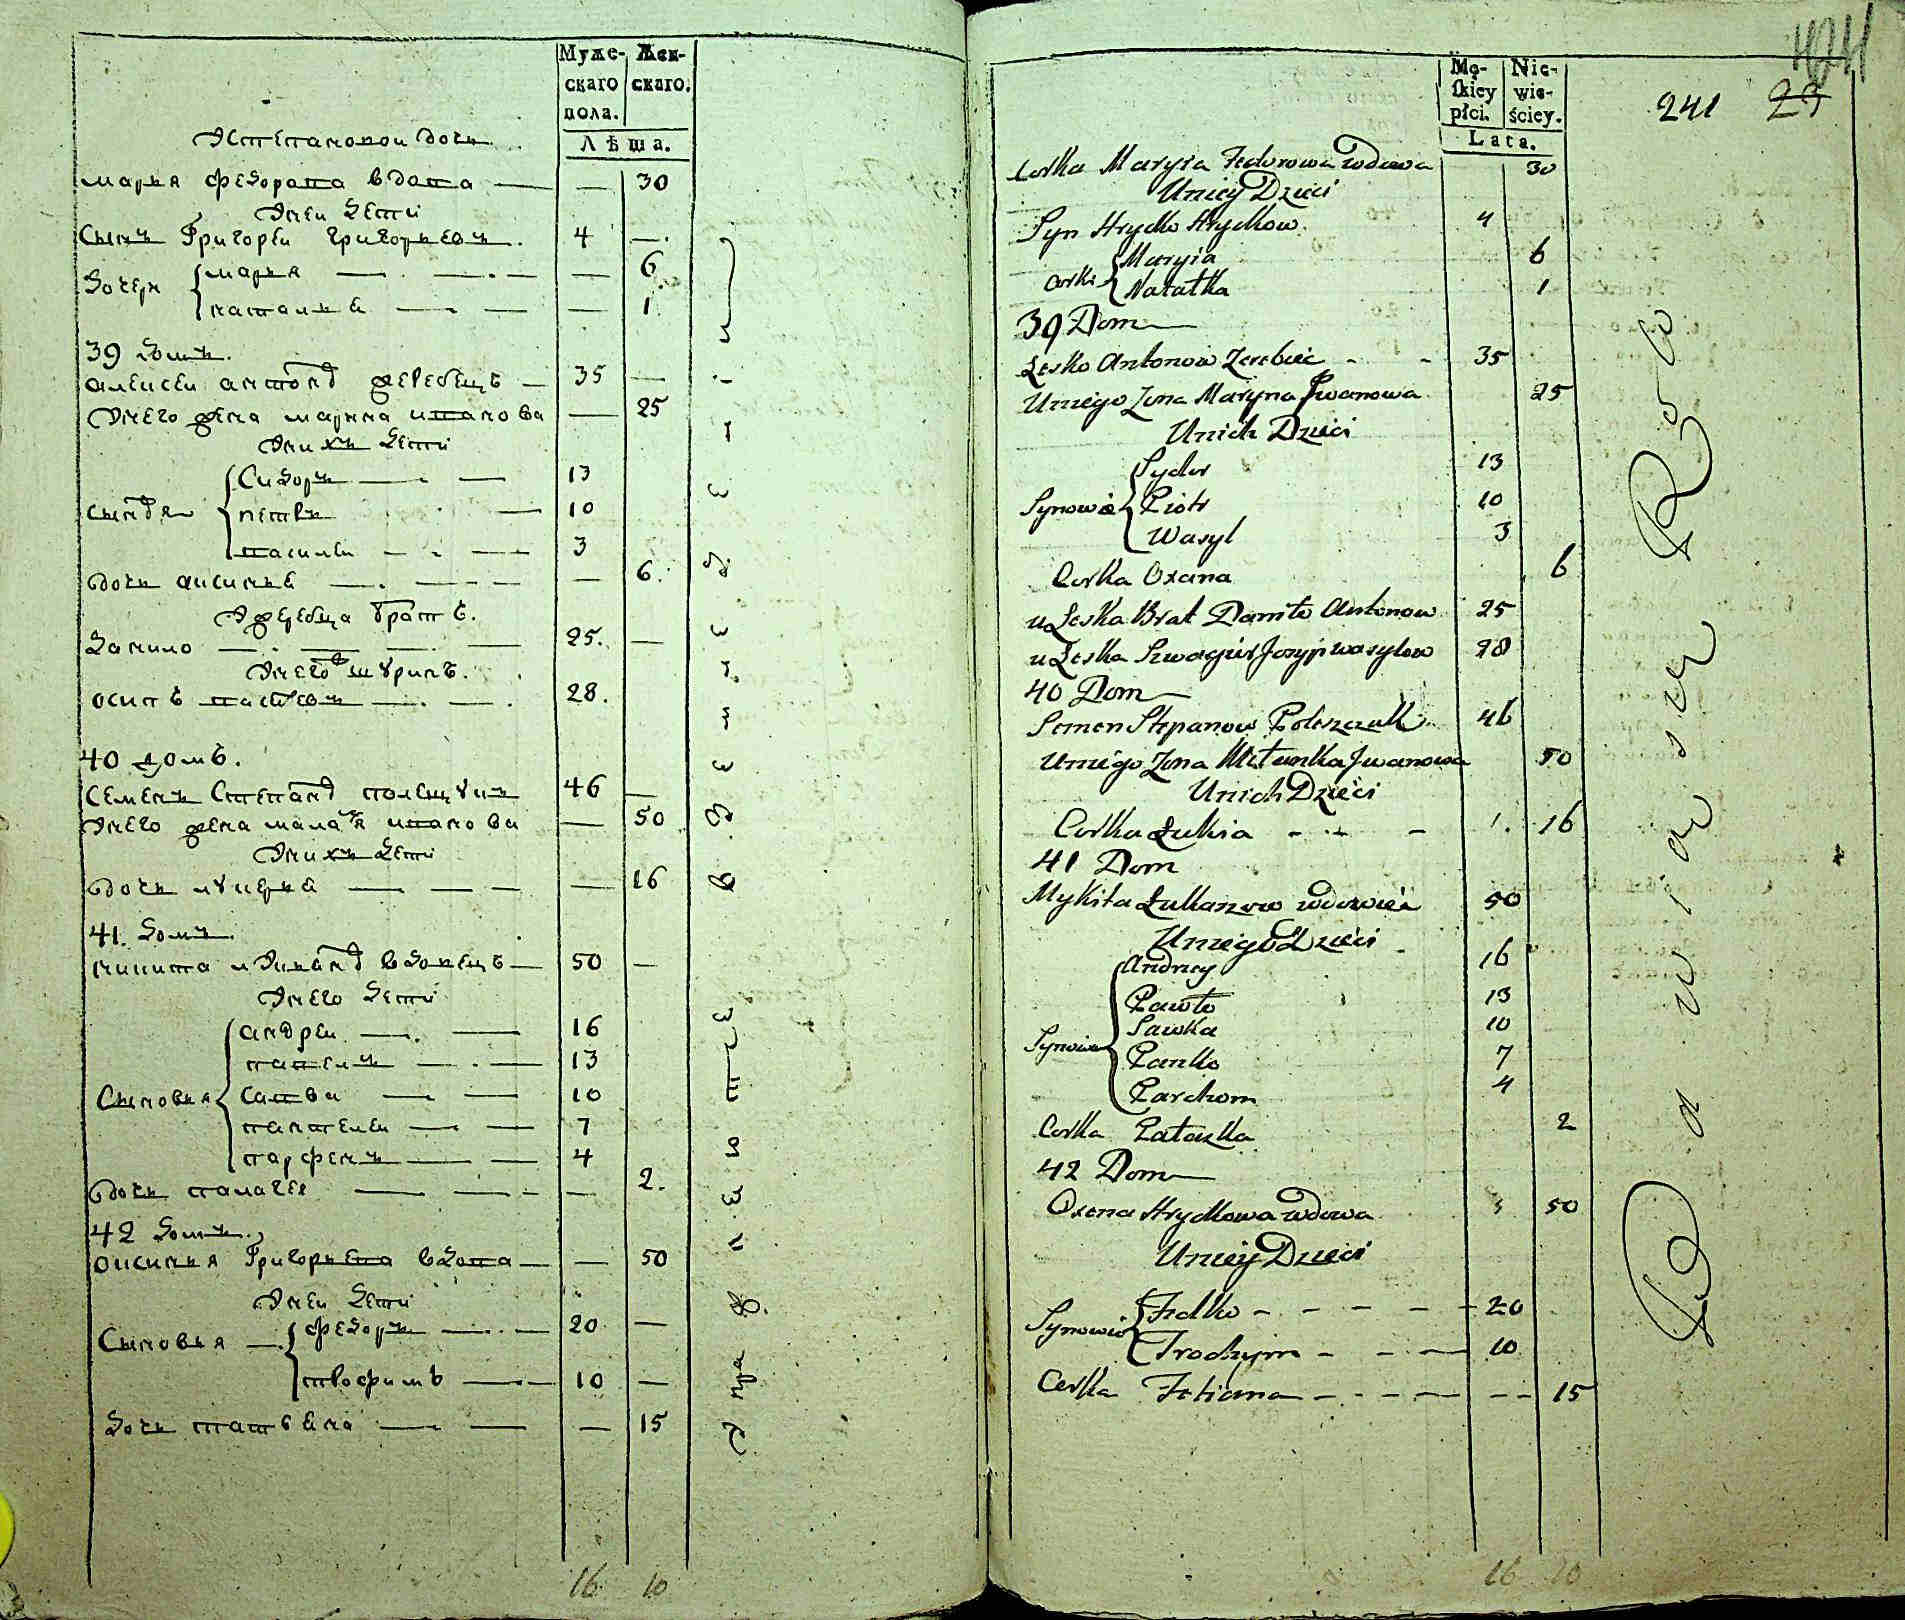 Муже-
скаго
пола.
Жен-
скаго.
Лѣта.
марья федорова вдова — — 30
Унеи дети
Сынъ Григореи григорьевъ. 4 —.
дочери { марья — — 6
наталья — — 1
39 домъ.
алексеи антонов жеребецъ — 35 —
Унего жена марина иванова — 25
Унихъ дети
сыновя { Сидоръ — 13
петръ — 10
василеи — 3
дочь аксинья — — 6.
Ужеребца братъ.
данило — 25. —
Унего шуринъ.
осипъ васильевъ — 28.
40 домъ.
Семенъ Степанов полещукъ 46 —
Унего жена маланя иванова — 50
Унихъ дети
дочь лукерья — — 16
41. домъ.
никита луканов вдовецъ — 50 —
Унего дети
Сыновья { андреи — 16
павелъ — 13
савва — 10
пантелеи — 7
парфенъ — 4
дочь палагея — — 2.
42 домъ.
оксинья Григорьева вдова — — 50
Унеи дети
Сыновья — { федоръ — 20 —
трофимъ — 10 —
дочь татьяна — — 15
16 10
Mę-
skiey
płci.
Nie-
wie-
ściey.
Lata.
241 23
424
Corka Maryia Fedorowa wdowa 30
Uniey Dzieci
Syn Hrycko Hryckow. 4
Corki { Maryia 6
Natałka 1
39 Dom
Łesko Antonow Zerebiec - - 35
Uniego Zona Maryna Iwanowa 25
Unich Dzieci
Synowie { Sydor 13
Piotr 10
Wasyl 3
Corka Oxana 6
u Leska Brat Daniło Antonow 25
u Leska Szwagier Jozyp wasylow 28
40 Dom
Semen Stepanow Poleszczuk 46
Uniego Zona Iwanowa 50
Unich Dzieci
Corka Łukia - - - 16
41 Dom
Mykita Łukaszow wdowiec 50
Uniego Dzieci
Synowie { Andrey 16
Pawło 13
Sawka 10
Panko 7
Parchom 4
Corka Pałaszka 2
42 Dom
Oxena Hryckowa wdowa 50
Uniey Dzieci
Synowie { Fedko - - - - - 20
Trochym - - - 10
Corka Tetiana - - - - - - 15
16 10